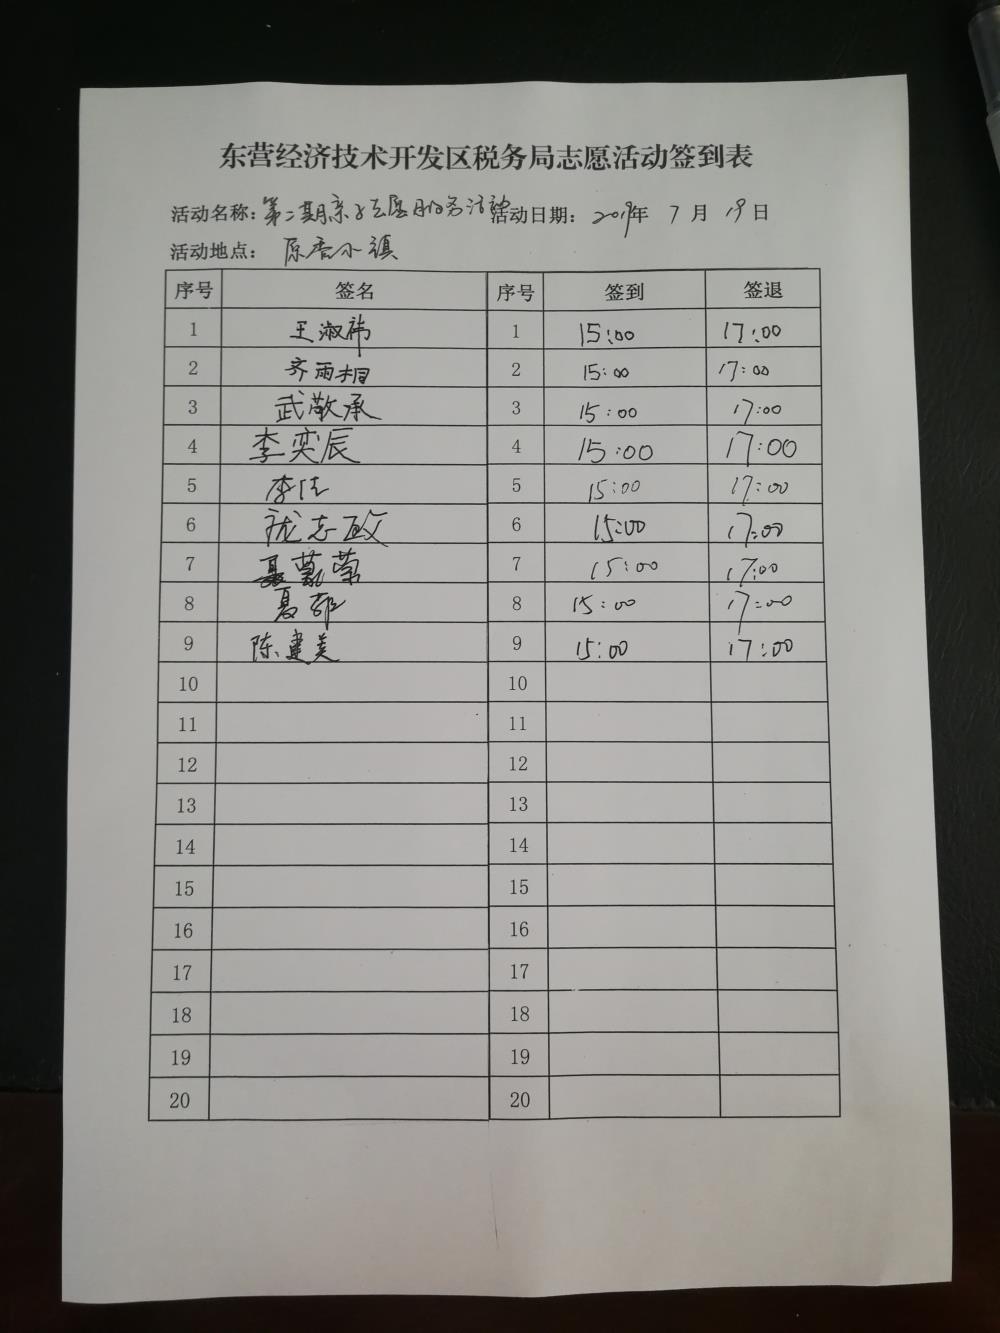 东营经济技术开发区税务局志愿活动签到表
活动名称：第二期亲子志愿服务活动 活动日期：2019年 7 月 19 日
活动地点： 原香小镇
序号 签名 序号 签到 签退
1 王淑祎 1 15:00 17:00
2 齐雨相 2 15:00 17:00
3 武敬承 3 15:00 17:00
4 李奕辰 4 15:00 17:00
5 李佳 5 15:00 17:00
6 志政 6 15:00 17:00
7 7 15:00 17:00
8 夏 8 15:00 17:00
9 陈建美 9 15:00 17:00
10 10
11 11
12 12
13 13
14 14
15 15
16 16
17 17
18 18
19 19
20 20